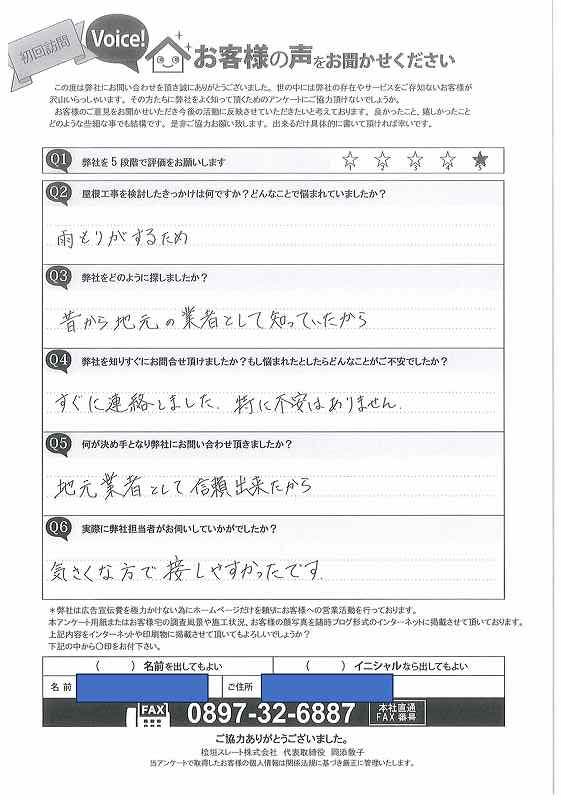 初回訪問
Voice!
お客様の声をお聞かせください
この度は弊社にお問い合わせを頂き誠にありがとうございました。世の中には弊社の存在やサービスをご存知ないお客様が
沢山いらっしゃいます。その方たちに弊社をよく知って頂くためのアンケートにご協力頂けないでしょうか。
お客様のご意見をお聞かせいただき今後の活動に反映させていただきたいと考えております。良かったこと、嬉しかったこと
どのような些細な事でも結構です。是非ご協力お願い致します。出来るだけ具体的に書いて頂ければ幸いです。
Q1 弊社を5段階で評価をお願いします
1 2 3 4 5
Q2 屋根工事を検討したきっかけは何ですか？どんなことで悩まれていましたか？
雨もりがするため
Q3 弊社をどのように探しましたか？
昔から地元の業者として知っていたから
Q4 弊社を知りすぐにお問合せ頂けましたか？もし悩まれたとしたらどんなことがご不安でしたか？
すぐに連絡しました。特に不安はありません。
Q5 何が決め手となり弊社にお問い合わせ頂きましたか？
地元業者として信頼出来たから
Q6 実際に弊社担当者がお伺いしていかがでしたか？
気さくな方で接しやすかったです。
＊弊社は広告宣伝費を極力かけない為にホームページだけを頼りにお客様への営業活動を行っております。
本アンケート用紙またはお客様宅の調査風景や施工状況、お客様の顔写真を随時ブログ形式のインターネットに掲載させて頂いております。
上記内容をインターネットや印刷物に掲載させて頂いてもよろしいでしょうか？
下記の中から〇印をお付下さい。
（　　）名前を出してもよい （　　）イニシャルなら出してもよい
名前 ご住所
FAX 0897-32-6887 本社直通 FAX番号
ご協力ありがとうございました。
桧垣スレート株式会社 代表取締役 岡添敦子
当アンケートで取得したお客様の個人情報は関係法規に基づき厳正に管理いたします。